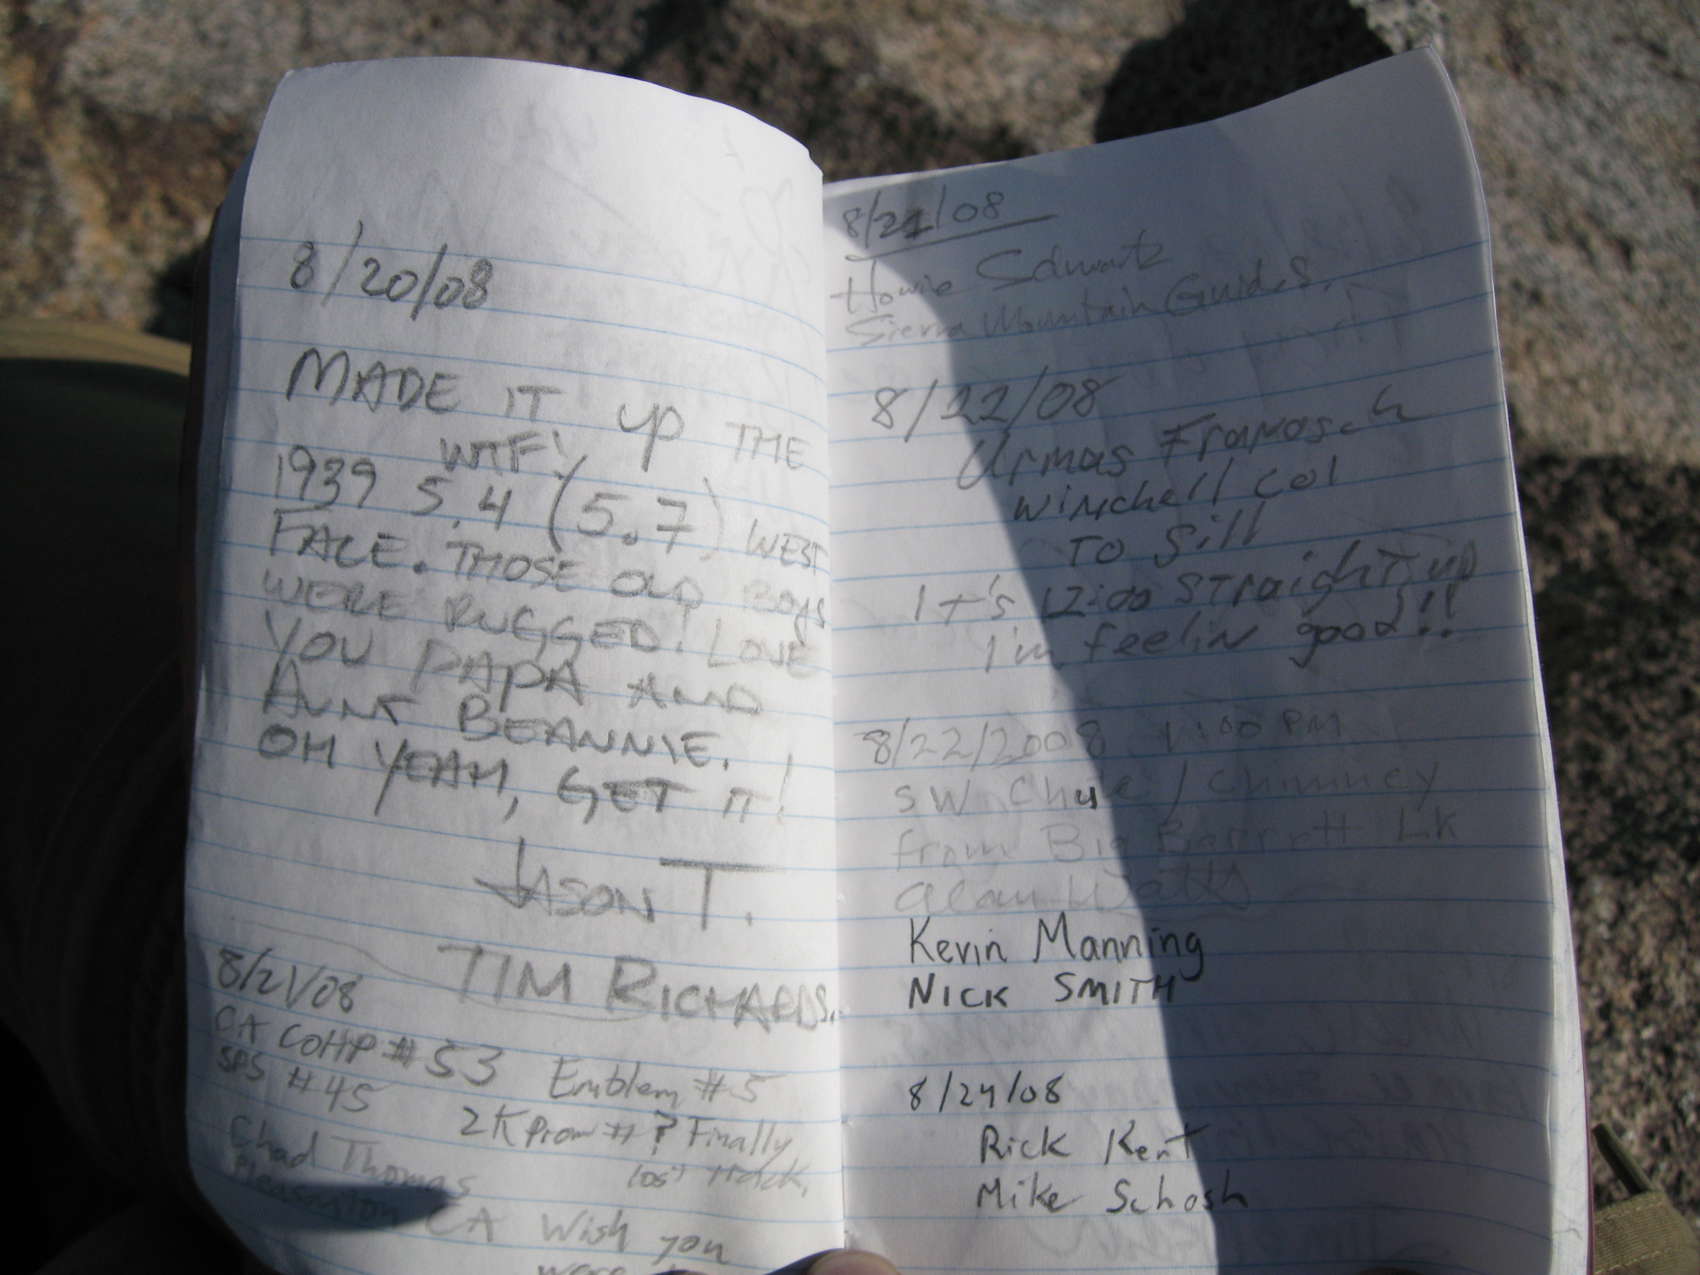 8/20/08
MADE IT UP THE
WTF!
1939 5.4 (5.7) WEST
FACE. THOSE OLD BOYS
WERE RUGGED. LOVE
YOU PAPA AND
AUNT BEANNIE.
OH YEAH, GET IT!
JASON T.
TIM RICHARDS.
8/21/08
CA COHP #53 Emblem #5
SPS #45
2K Prom #? Finally
lost track,
Chad Thomas
Pleasanton CA Wish you
were
8/21/08
Howie Schwartz
Sierra Mountain Guides.
8/22/08
Urmas
Winchell Col
TO Sill
It's 12:00 straight up
I'm feelin good!!
8/22/2008 1:00 PM
SW Chute / Chimney
from Big Barrett Lk
Alan Watts
Kevin Manning
NICK SMITH
8/24/08
Rick Kent
Mike Schosh